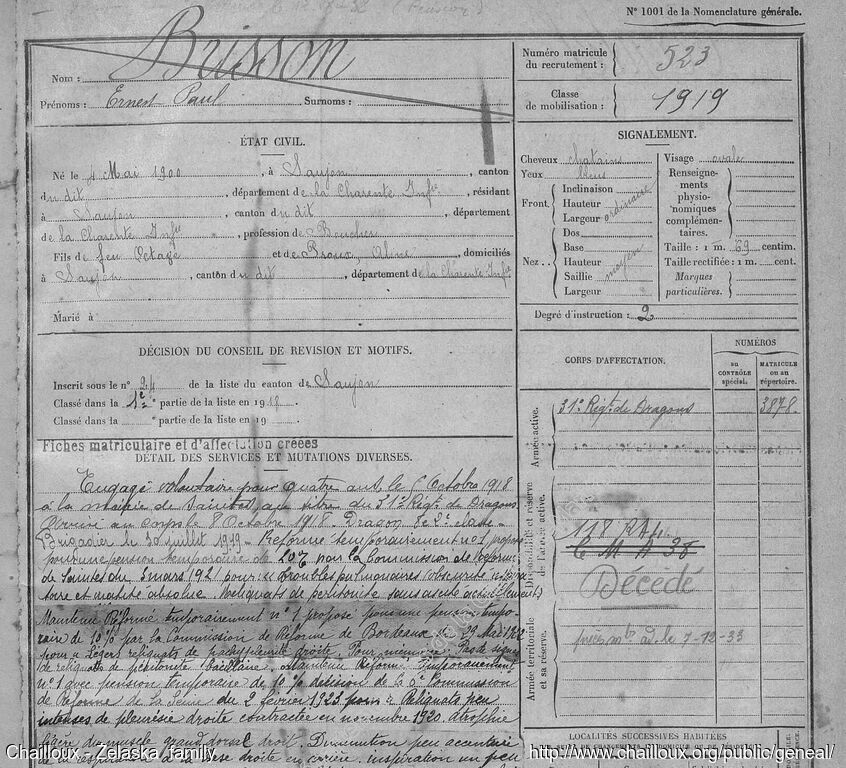 N° 1001 de la Nomenclature générale.
Nom : Brisson
Prénoms : Ernest Paul Surnoms :
Numéro matricule du recrutement : 523
Classe de mobilisation : 1919
ÉTAT CIVIL.
Né le 4 Mai 1900, à Saujon, canton
du dit, département de la Charente Infre, résidant
à Saujon, canton du dit, département
de la Charente Infre, profession de Boucher
Fils de feu Octave et de Proux, Aline, domiciliés
à Saujon, canton du dit, département de la Charente Infre
Marié à
SIGNALEMENT.
Cheveux chatains
Yeux bleus
Front : Inclinaison Hauteur Largeur ordinaire
Nez : Dos Base Hauteur Saillie Largeur moyen
Visage ovale
Renseignements physionomiques complémentaires.
Taille : 1 m. 69 centim.
Taille rectifiée : 1 m. cent.
Marques particulières.
Degré d'instruction : 2
DÉCISION DU CONSEIL DE REVISION ET MOTIFS.
Inscrit sous le n° 24 de la liste du canton de Saujon
Classé dans la 1re partie de la liste en 1918
Classé dans la partie de la liste en 19
Fiches matriculaire et d'affectation créées
DÉTAIL DES SERVICES ET MUTATIONS DIVERSES.
Engagé volontaire pour quatre ans le 6 Octobre 1918
à la mairie de Saintes, au titre du 31e Régt de Dragons
Arrivé au corps le 8 Octobre 1918. Dragon de 2e classe
Brigadier le 30 juillet 1919. Réformé temporairement n° 1 proposé
pour une pension temporaire de 20% par la Commission de Réforme
de Saintes du 2 mars 1921 pour troubles pulmonaires obscurité
et matité absolue. Reliquats de péritonite sans ascite actuellement)
Maintenu Réformé temporairement n° 1 proposé pour une pension temporaire
de 10% par la Commission de Réforme de Bordeaux du 29 Mai
pour légers reliquats de pachypleurite droite. Pour mémoire. Pas de signes
de reliquats de péritonite bacillaire. Maintenu Réformé temporairement
n° 1 avec pension temporaire de 10% décision de la 6e Commission
de Réforme de la Seine du 2 février 1923 pour : Reliquats peu
intenses de pleurésie droite contractée en novembre 1920. atrophie
légère du muscle grand dorsal droit. Diminution peu accentuée
de la respiration à la base droite en arrière, inspiration un peu
CORPS D'AFFECTATION.
NUMÉROS
au CONTRÔLE spécial.
MATRICULE ou au répertoire.
Armée active.
31e Régt de Dragons 3878
Disponibilité et réserve de l'armée active.
118 RAL
C M A 38
Décédé
Armée territoriale et sa réserve.
7-12-33
LOCALITÉS SUCCESSIVES HABITÉES
Chailloux - Zelaska family
http://www.chailloux.org/public/geneal/